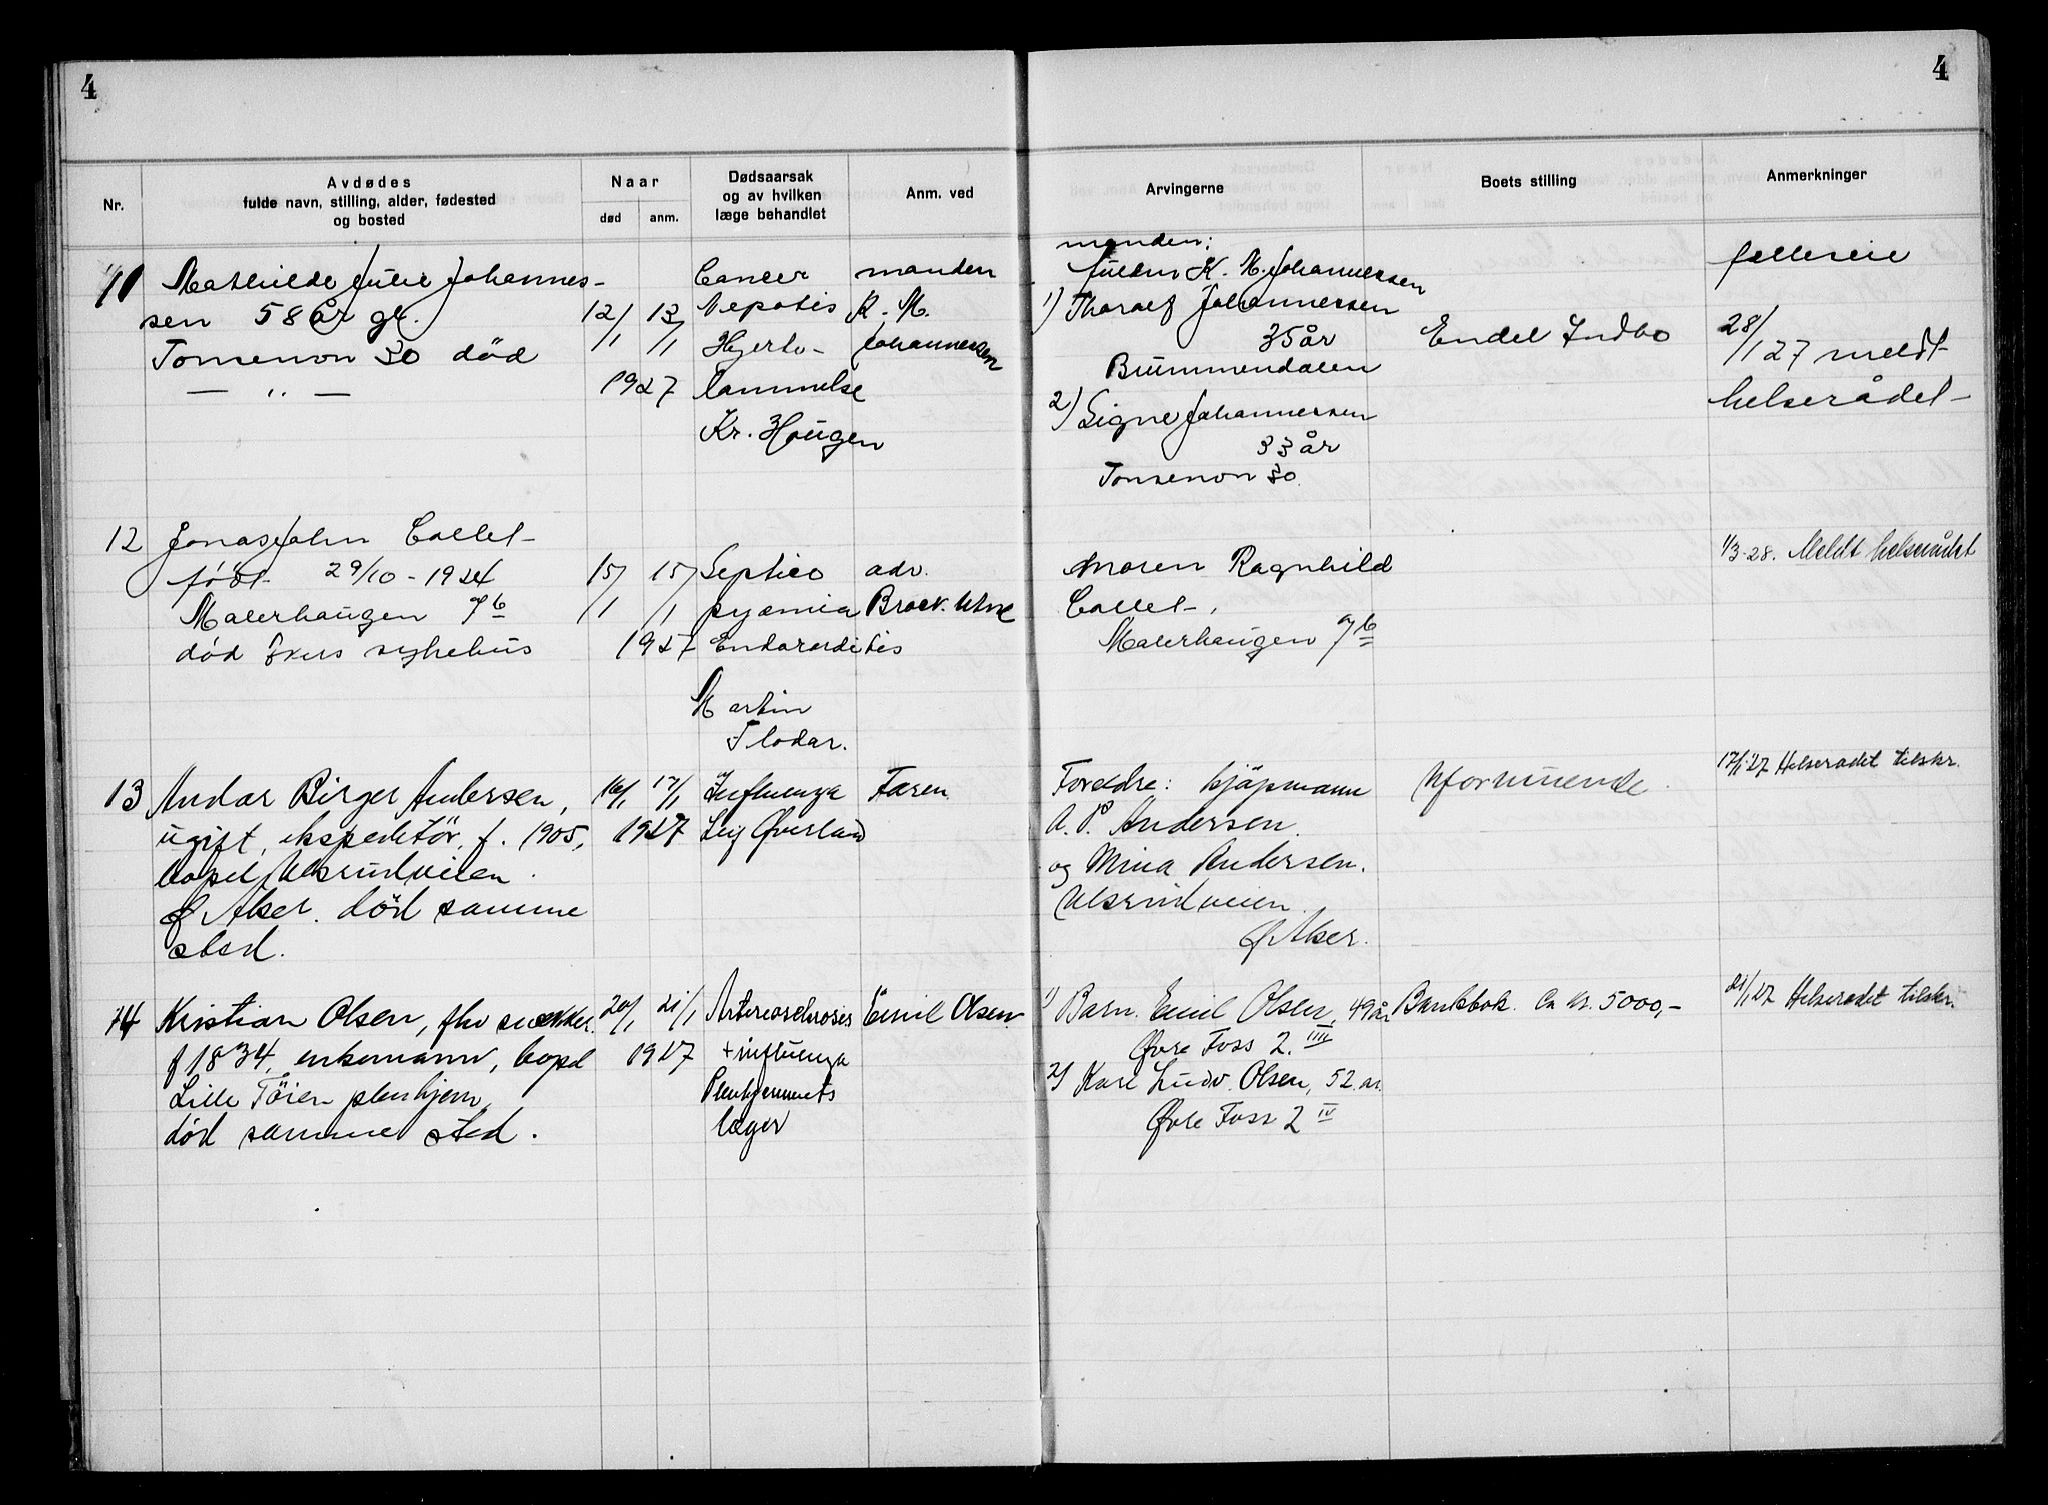 4
4
Nr.
Avdødes
fulde navn, stilling, alder, fødested
og bosted
Naar
død
anm.
Dødsaarsak
og av hvilken
læge behandlet
Anm. ved
Arvingerne
Boets stilling
Anmerkninger
11
Mathilde Julie Johannes-
sen 58 år gl.
Tonsenvn 30 død
— „ —
12/1
13/1
1927
Cancer
Hepatis
Hjerte-
lammelse
Kr. Haugen
manden
K. M.
Johannessen
manden:
K. M. Johannessen
1) Thoralf Johannessen
35 år
Brummendalen
2) Signe Johannessen
33 år
Tonsenvn 30.
Endel Indbo
felleseie
28/1 27 meldt
helserådet
12
Jonas John Collet
født 29/10-1924
Malerhaugen 7b
død Akers sykehus
15/1
15/1
1927
Septico
pyæmia
Endocarditis
Martin
Flodar.
adv.
Broch. Utne
Moren Ragnhild
Collet,
Malerhaugen 7b
1/3-28. Meldt helserådet
13
Andor Birger Andersen,
ugift, ekspeditör, f. 1905,
bopel Ulsrudveien.
Ø Aker. död samme
sted.
16/1
17/1
1927
Influenza
Leif Øverland
Faren
Foreldre: kjöpmann
A. P. Andersen.
og Mina Andersen.
Ulsrudveien.
Ø Aker.
Uformuende.
17/1 27 Helseradet tilskr.
14
Kristian Olsen, fhv snekker.
f 1834, enkemann, bopel
Lille Töien pleiehjem,
död samme sted.
20/1
21/1
1927
Arteriosclerosis
+ influenza
Pleiehjemmets
læger
Emil Olsen
1) Barn. Emil Olsen, 49 år
Øvre Foss 2. III
2) Karl Ludv. Olsen, 52 ar.
Øvre Foss 2 IV
Bankbok. Ca kr. 5000,-
21/1 27 Helseradet tilskr.